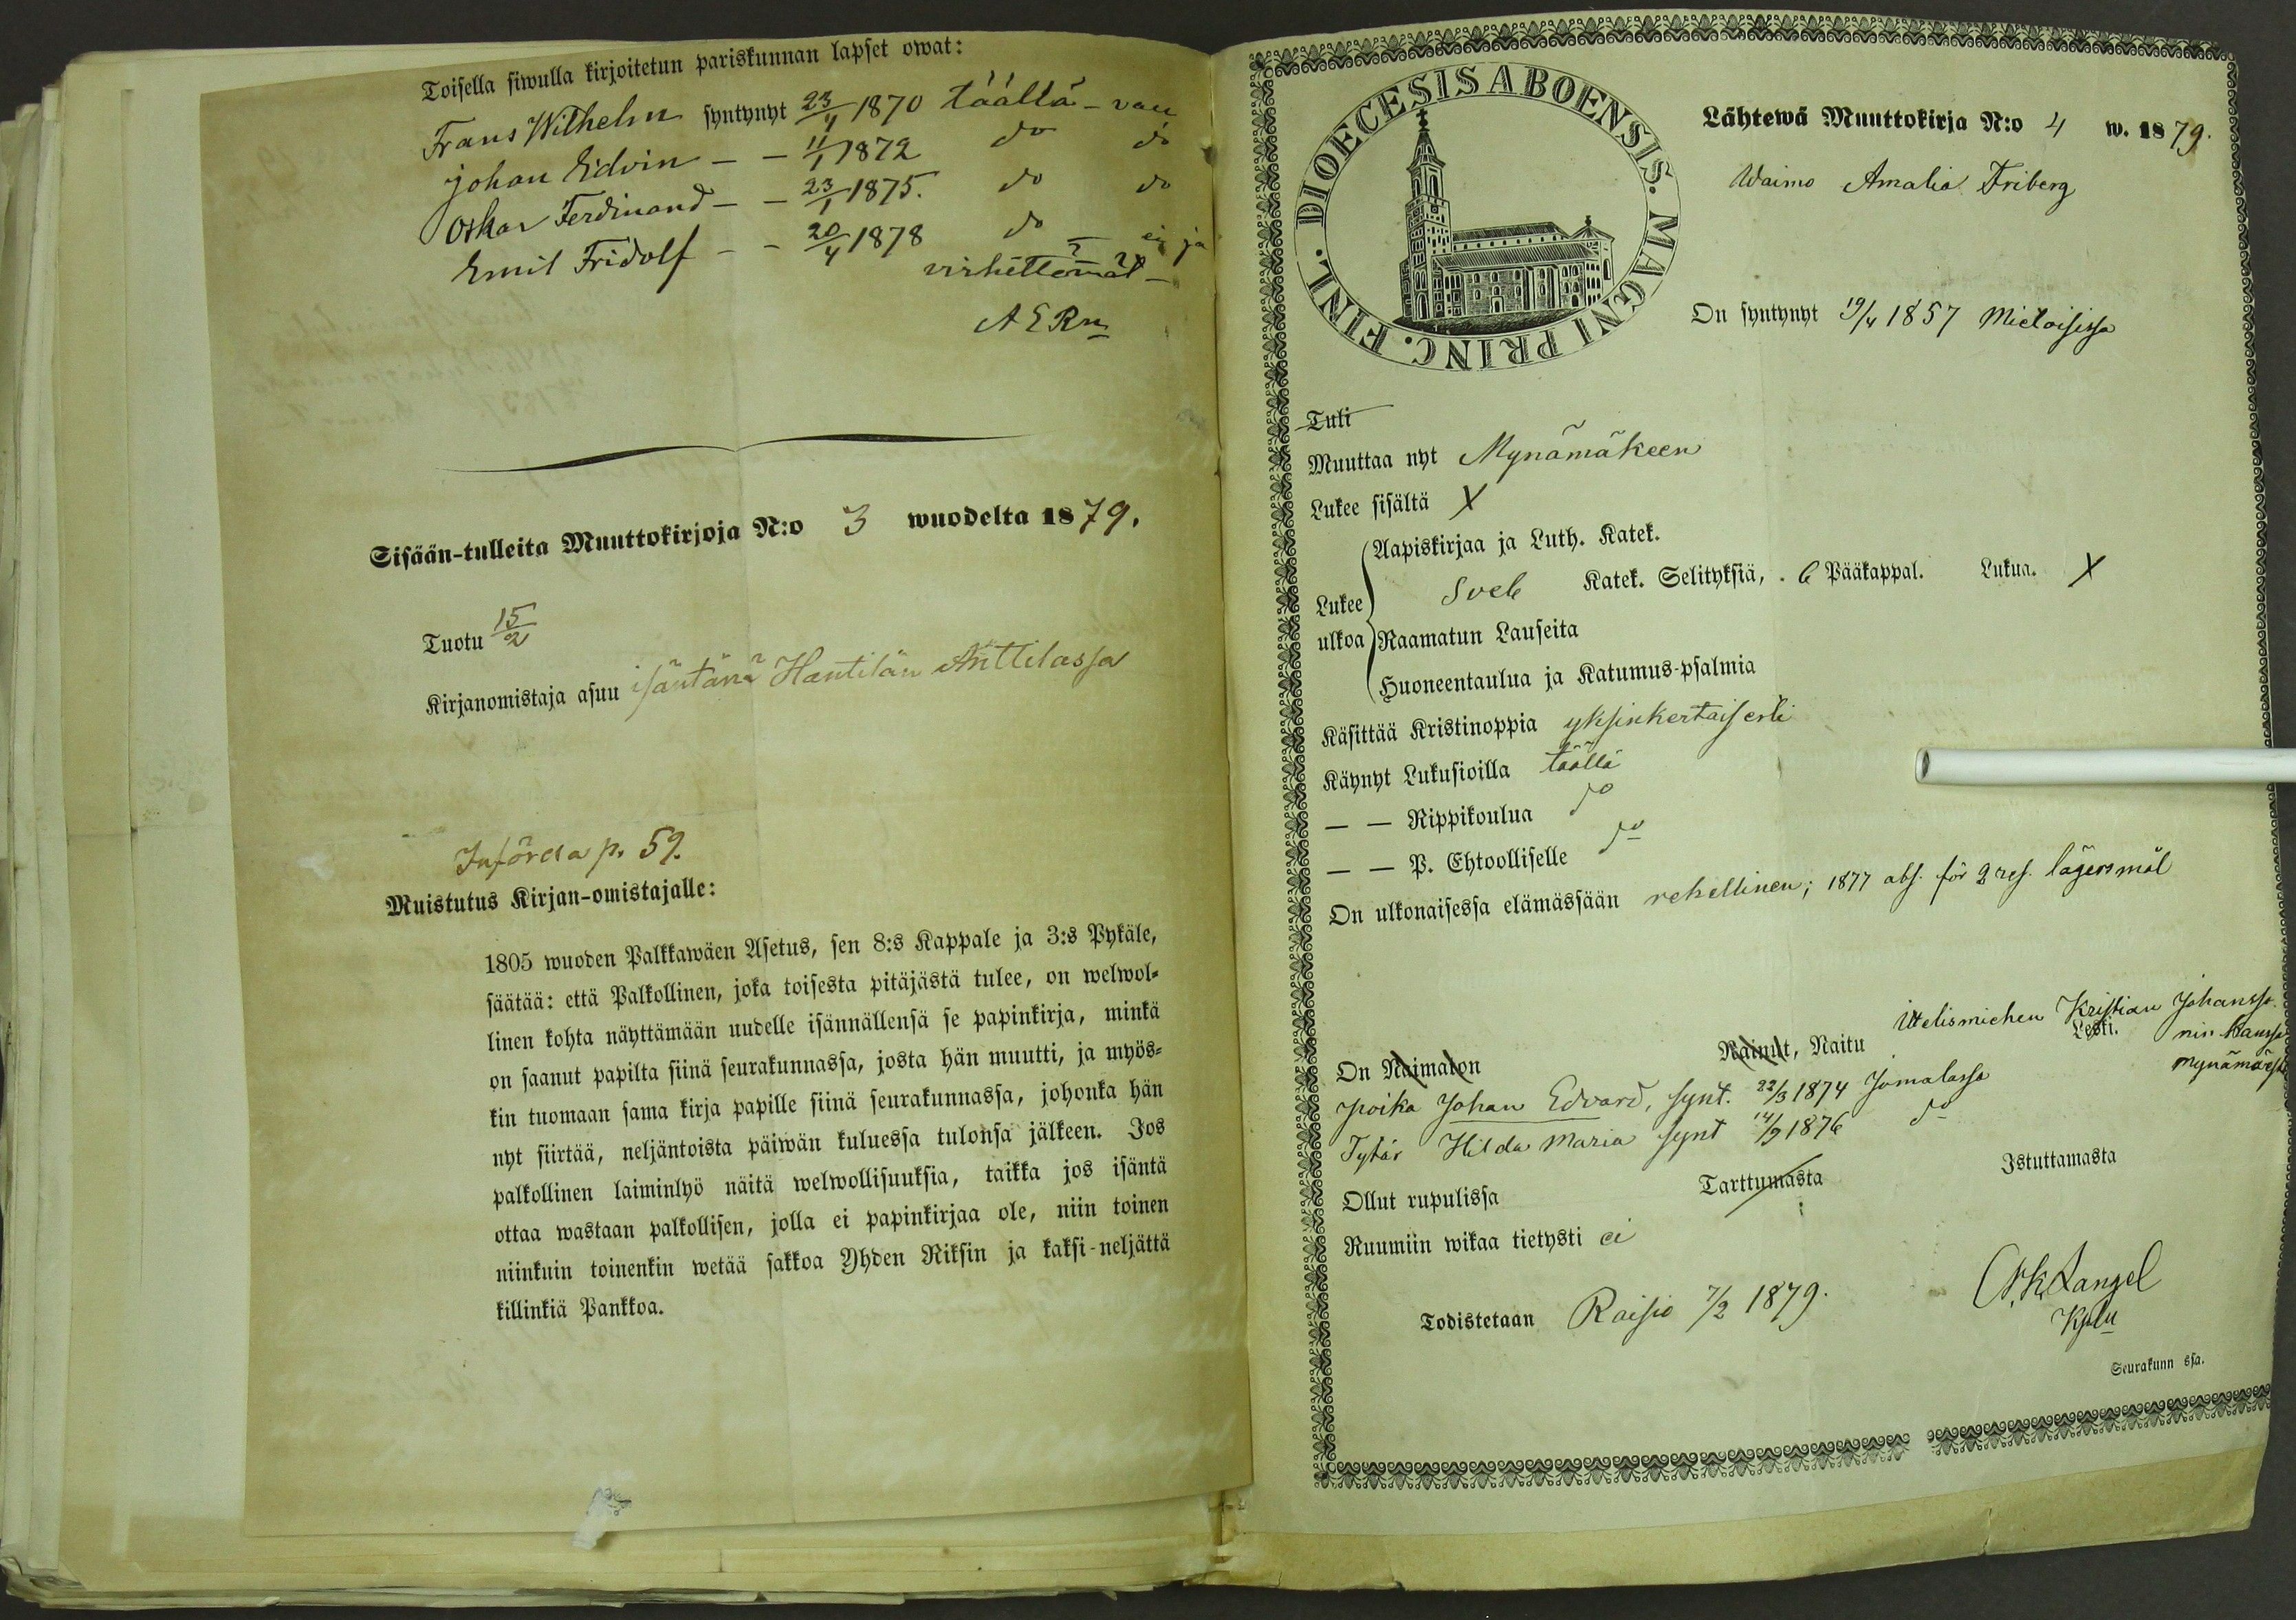 Toisella siwulla kirjoitetun pariskunnan lapset owat:
Frans Wilhelm syntynyt 23/4 1870 täällä - vau
Johan Edvin - - 11/1 1872 do do
Oskar Ferdinand - - 23/1 1875. do do
Emil Fridolf - - 20/4 1878 do - ei ja
virhettömät -
A E Rn
Sisään-tulleita Muuttokirjoja N:o 3 wuodelta 1879.
Tuotu 15/2
Kirjanomistaja asuu isäntänä Hantilän Anttilassa
Införda p. 59.
Muistutus Kirjan-omistajalle:
1805 wuoden Palkkawäen Asetus, sen 8:s Kappale ja 3:s Pykäle,
säätää: että Palkollinen, joka toisesta pitäjästä tulee, on welwol-
linen kohta näyttämään uudelle isännällensä se papinkirja, minkä
on saanut papilta siinä seurakunnassa, josta hän muutti, ja myös-
kin tuomaan sama kirja papille siinä seurakunnassa, johonka hän
nyt siirtää, neljäntoista päiwän kuluessa tulonsa jälkeen. Jos
palkollinen laiminlyö näitä welwollisuuksia, taikka jos isäntä
ottaa wastaan palkollisen, jolla ei papinkirjaa ole, niin toinen
niinkuin toinenkin wetää sakkoa Yhden Riksin ja kaksi-neljättä
killinkiä Pankkoa.
DIOECESIS ABOENSIS. MAGNI PRINC. FINL.
Lähtewä Muuttokirja N:o 4 w. 1879.
Waimo Amalia Friberg
On syntynyt 19/4 1857 Mietoisissa
Tuli
Muuttaa nyt Mynämäkeen
Lukee sisältä X
Aapiskirjaa ja Luth. Katek.
Lukee Sveb Katek. Selityksiä, 6 Pääkappal. Lukua. X
ulkoa Raamatun Lauseita
Huoneentaulua ja Katumus-psalmia
Käsittää Kristinoppia yksinkertaisesti
Käynyt Lukusioilla täällä
— — Rippikoulua do
— — P. Ehtoolliselle do
On ulkonaisessa elämässään rehellinen; 1877 abs. för 2 res. lägersmål
On Naimaton Nainut, Naitu Itelismiehen Kristian Johansso
Leski. nin kanssa
Mynämäestä
Poika Johan Edvard, synt. 22/3 1874 Jomalassa
Tytär Hilda Maria synt 14/9 1876 do
Ollut rupulissa Tarttumasta Istuttamasta
Ruumiin wikaa tietysti ei
Todistetaan Raisio 7/2 1879.
Langel
Kpln
Seurakunn ssa.